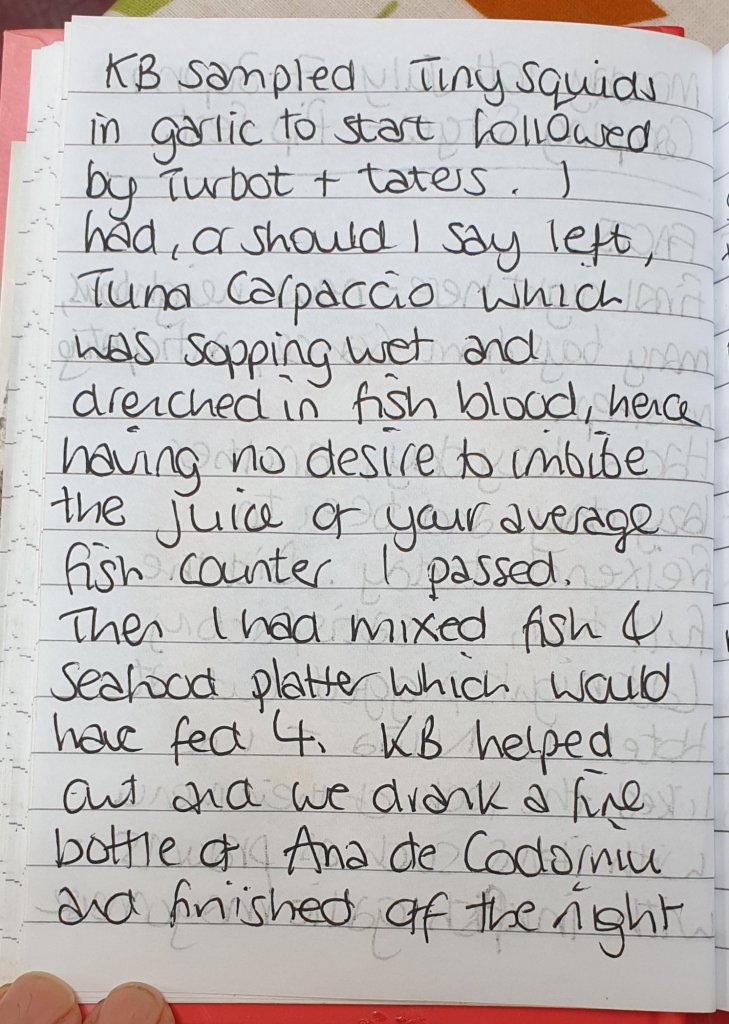 KB sampled Tiny squids
in garlic to start followed
by Turbot + taters. I
had, or should I say left,
Tuna Carpaccio which
was sopping wet and
drenched in fish blood, hence
having no desire to imbibe
the juice of your average
fish counter I passed.
Then I had mixed fish &
Seafood platter which would
have fed 4. KB helped
out and we drank a fine
bottle of Ana de Codorniu
and finished off the night